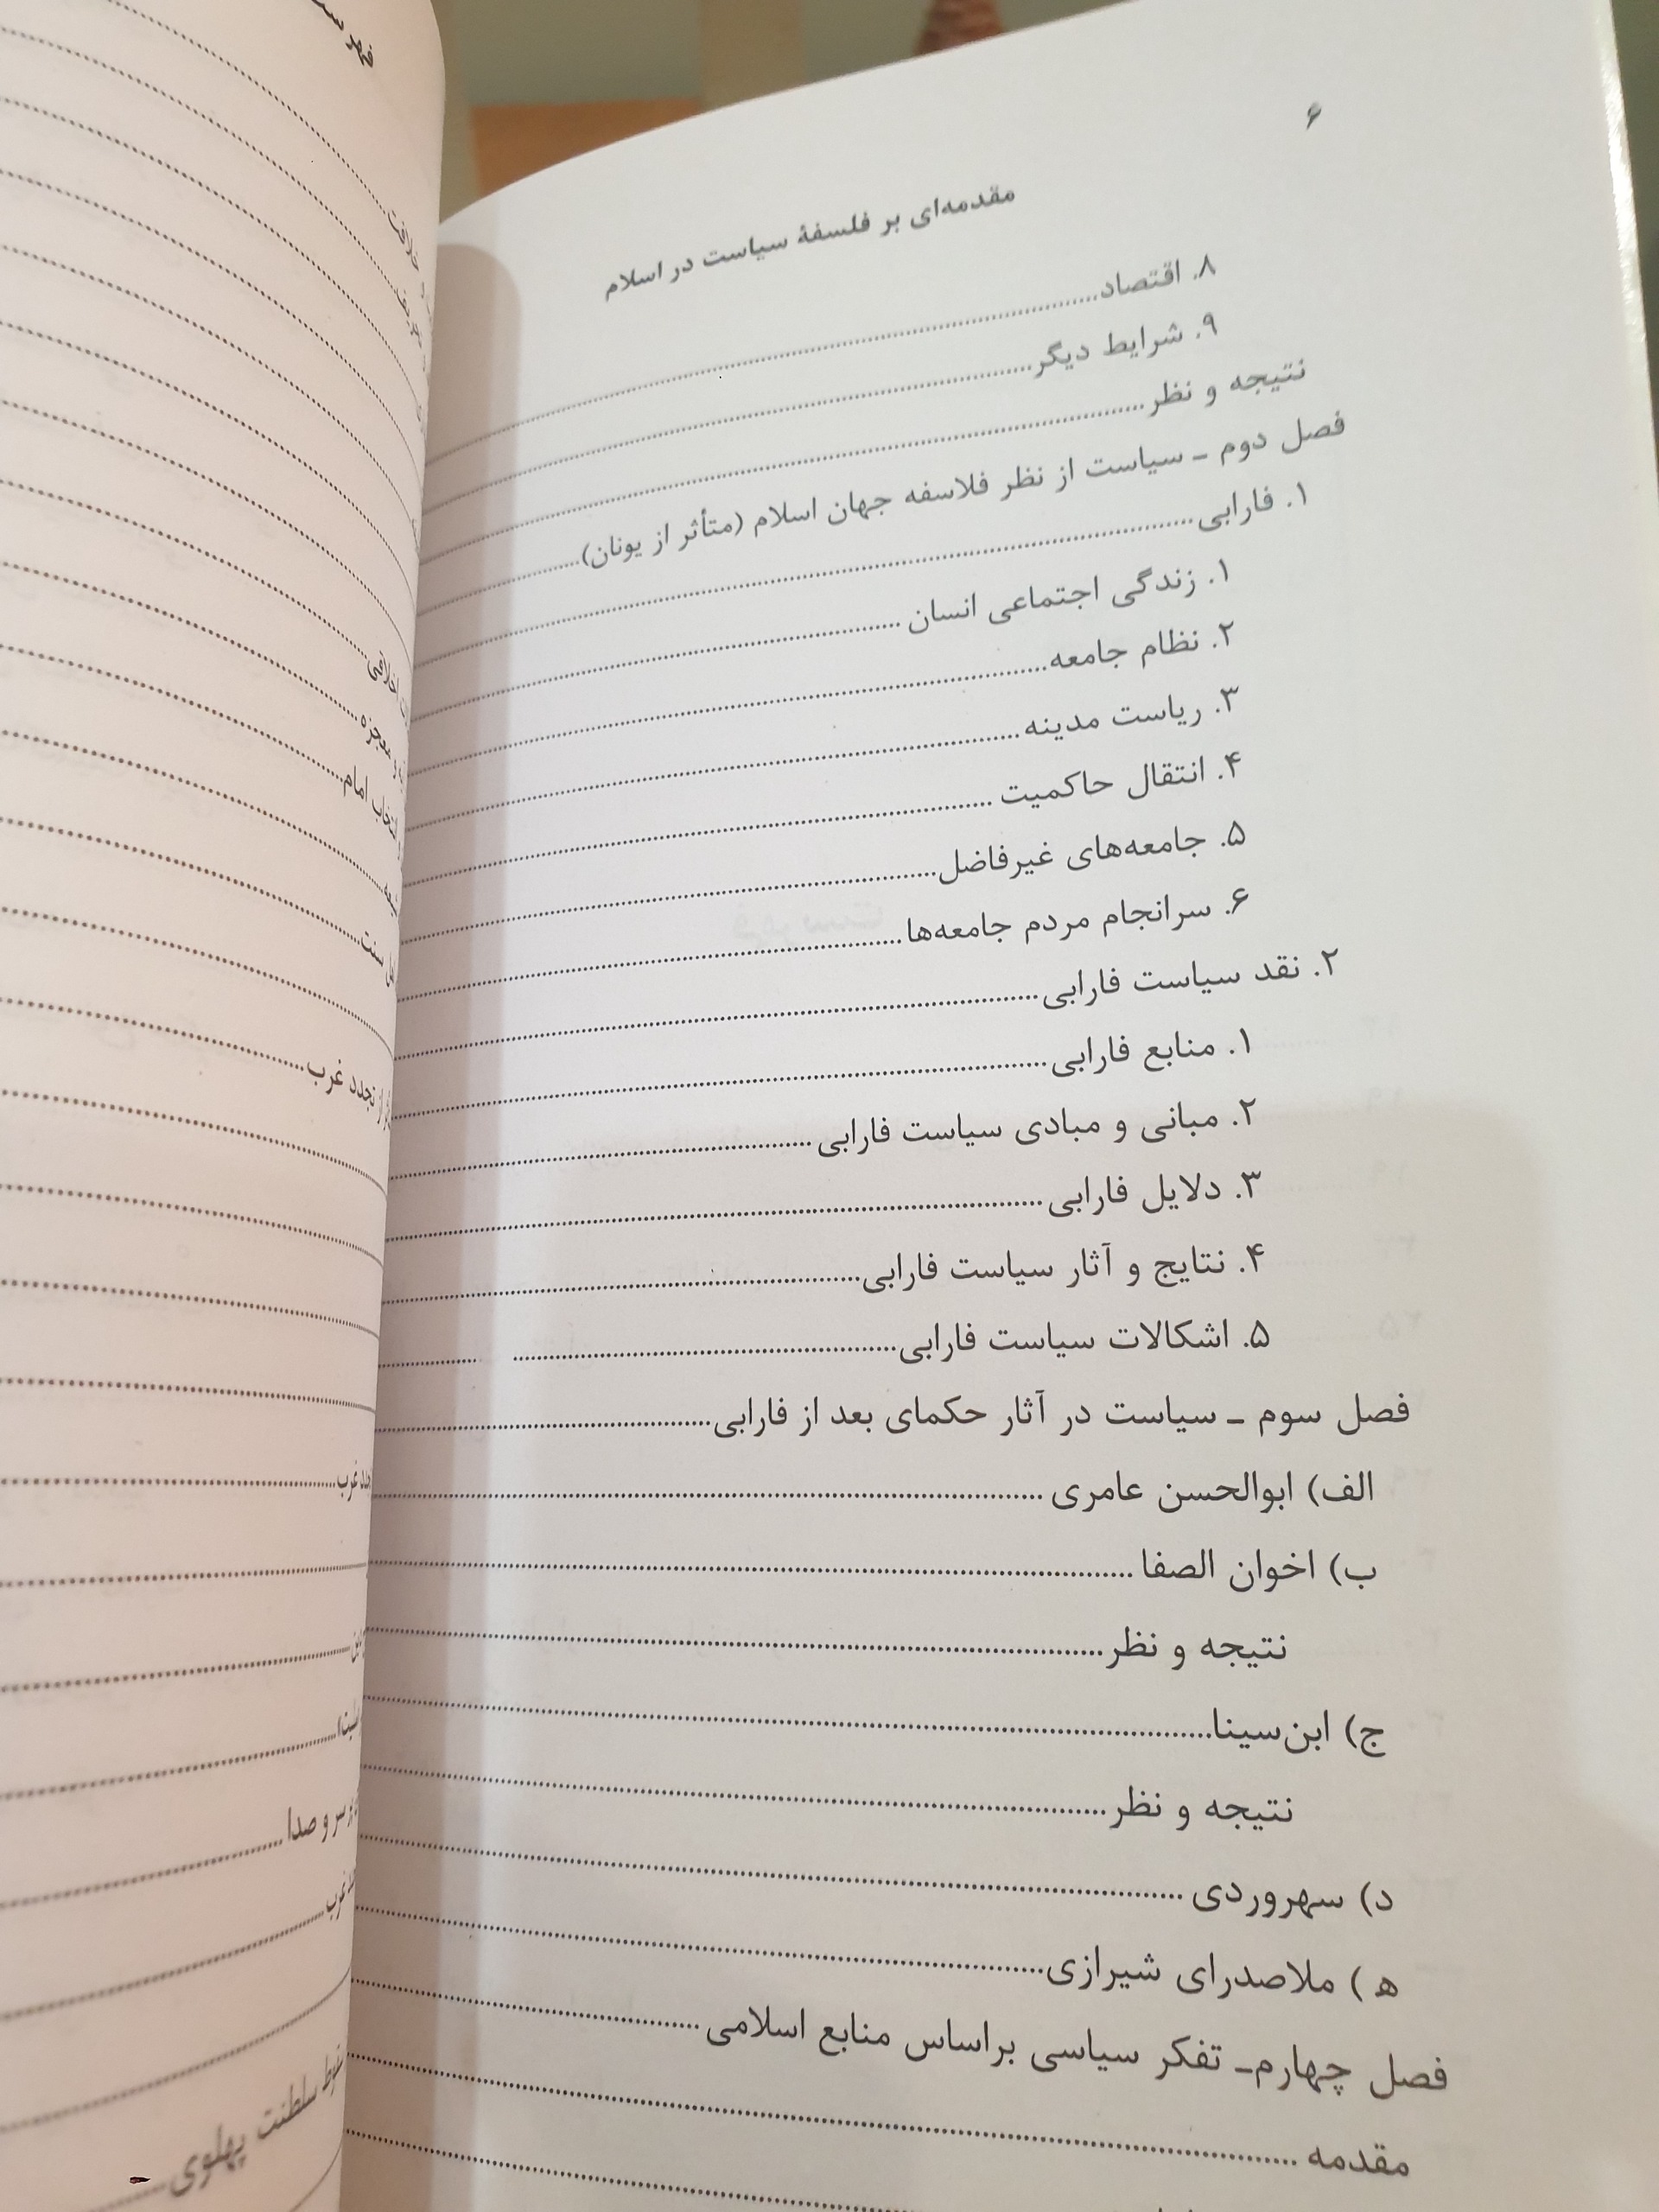 ۶
مقدمه‌ای بر فلسفهٔ سیاست در اسلام
۸. اقتصاد
۹. شرایط دیگر
نتیجه و نظر
فصل دوم ـ سیاست از نظر فلاسفه جهان اسلام (متأثر از یونان)
۱. فارابی
۱. زندگی اجتماعی انسان
۲. نظام جامعه
۳. ریاست مدینه
۴. انتقال حاکمیت
۵. جامعه‌های غیرفاضل
۶. سرانجام مردم جامعه‌ها
۲. نقد سیاست فارابی
۱. منابع فارابی
۲. مبانی و مبادی سیاست فارابی
۳. دلایل فارابی
۴. نتایج و آثار سیاست فارابی
۵. اشکالات سیاست فارابی
فصل سوم ـ سیاست در آثار حکمای بعد از فارابی
الف) ابوالحسن عامری
ب) اخوان الصفا
نتیجه و نظر
ج) ابن‌سینا
نتیجه و نظر
د) سهروردی
ه) ملاصدرای شیرازی
فصل چهارم ـ تفکر سیاسی براساس منابع اسلامی
مقدمه
خلافت
معجزه
امام
سنت
تجدد غرب
غرب
سر و صدا
غرب
سقوط سلطنت پهلوی